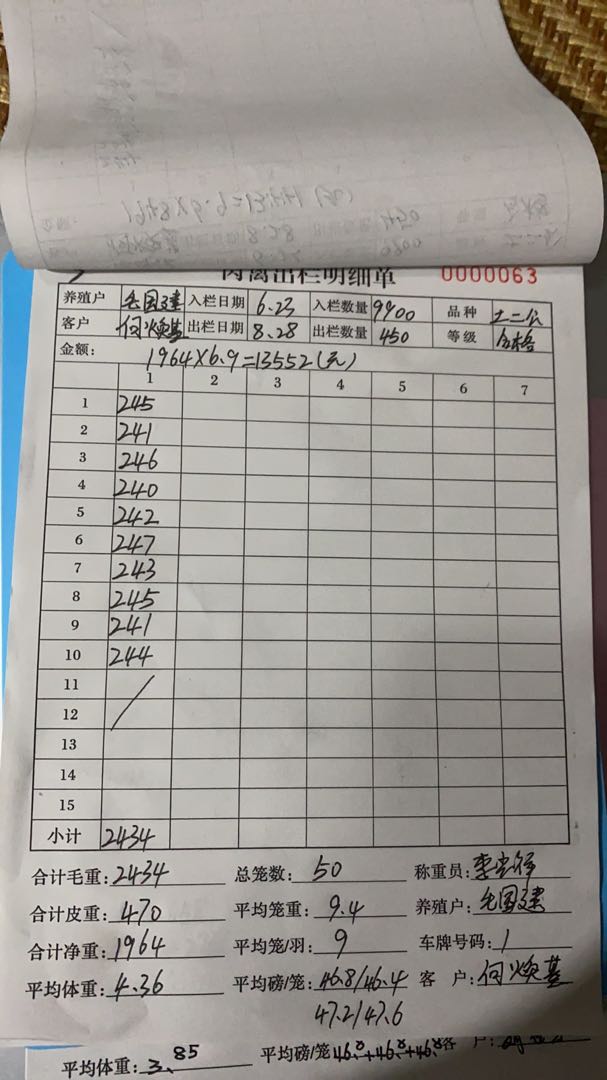 肉禽出栏明细单 0000063
养殖户 毛国建 入栏日期 6.23 入栏数量 9900 品种 土二公
客户 何焕基 出栏日期 8.28 出栏数量 450 等级 合格
金额: 1964×6.9=13552(元)
1 2 3 4 5 6 7
1 245
2 241
3 246
4 240
5 242
6 247
7 243
8 245
9 241
10 244
11
12
13
14
15
小计 2434
合计毛重: 2434 总笼数: 50 称重员: 李
合计皮重: 470 平均笼重: 9.4 养殖户: 毛国建
合计净重: 1964 平均笼/羽: 9 车牌号码: /
平均体重: 4.36 平均磅/笼: 46.8/46.4 客 户: 何焕基
47.2/47.6
平均体重: 3.85 平均磅/笼 46.8+46.8+46.8 客 户: